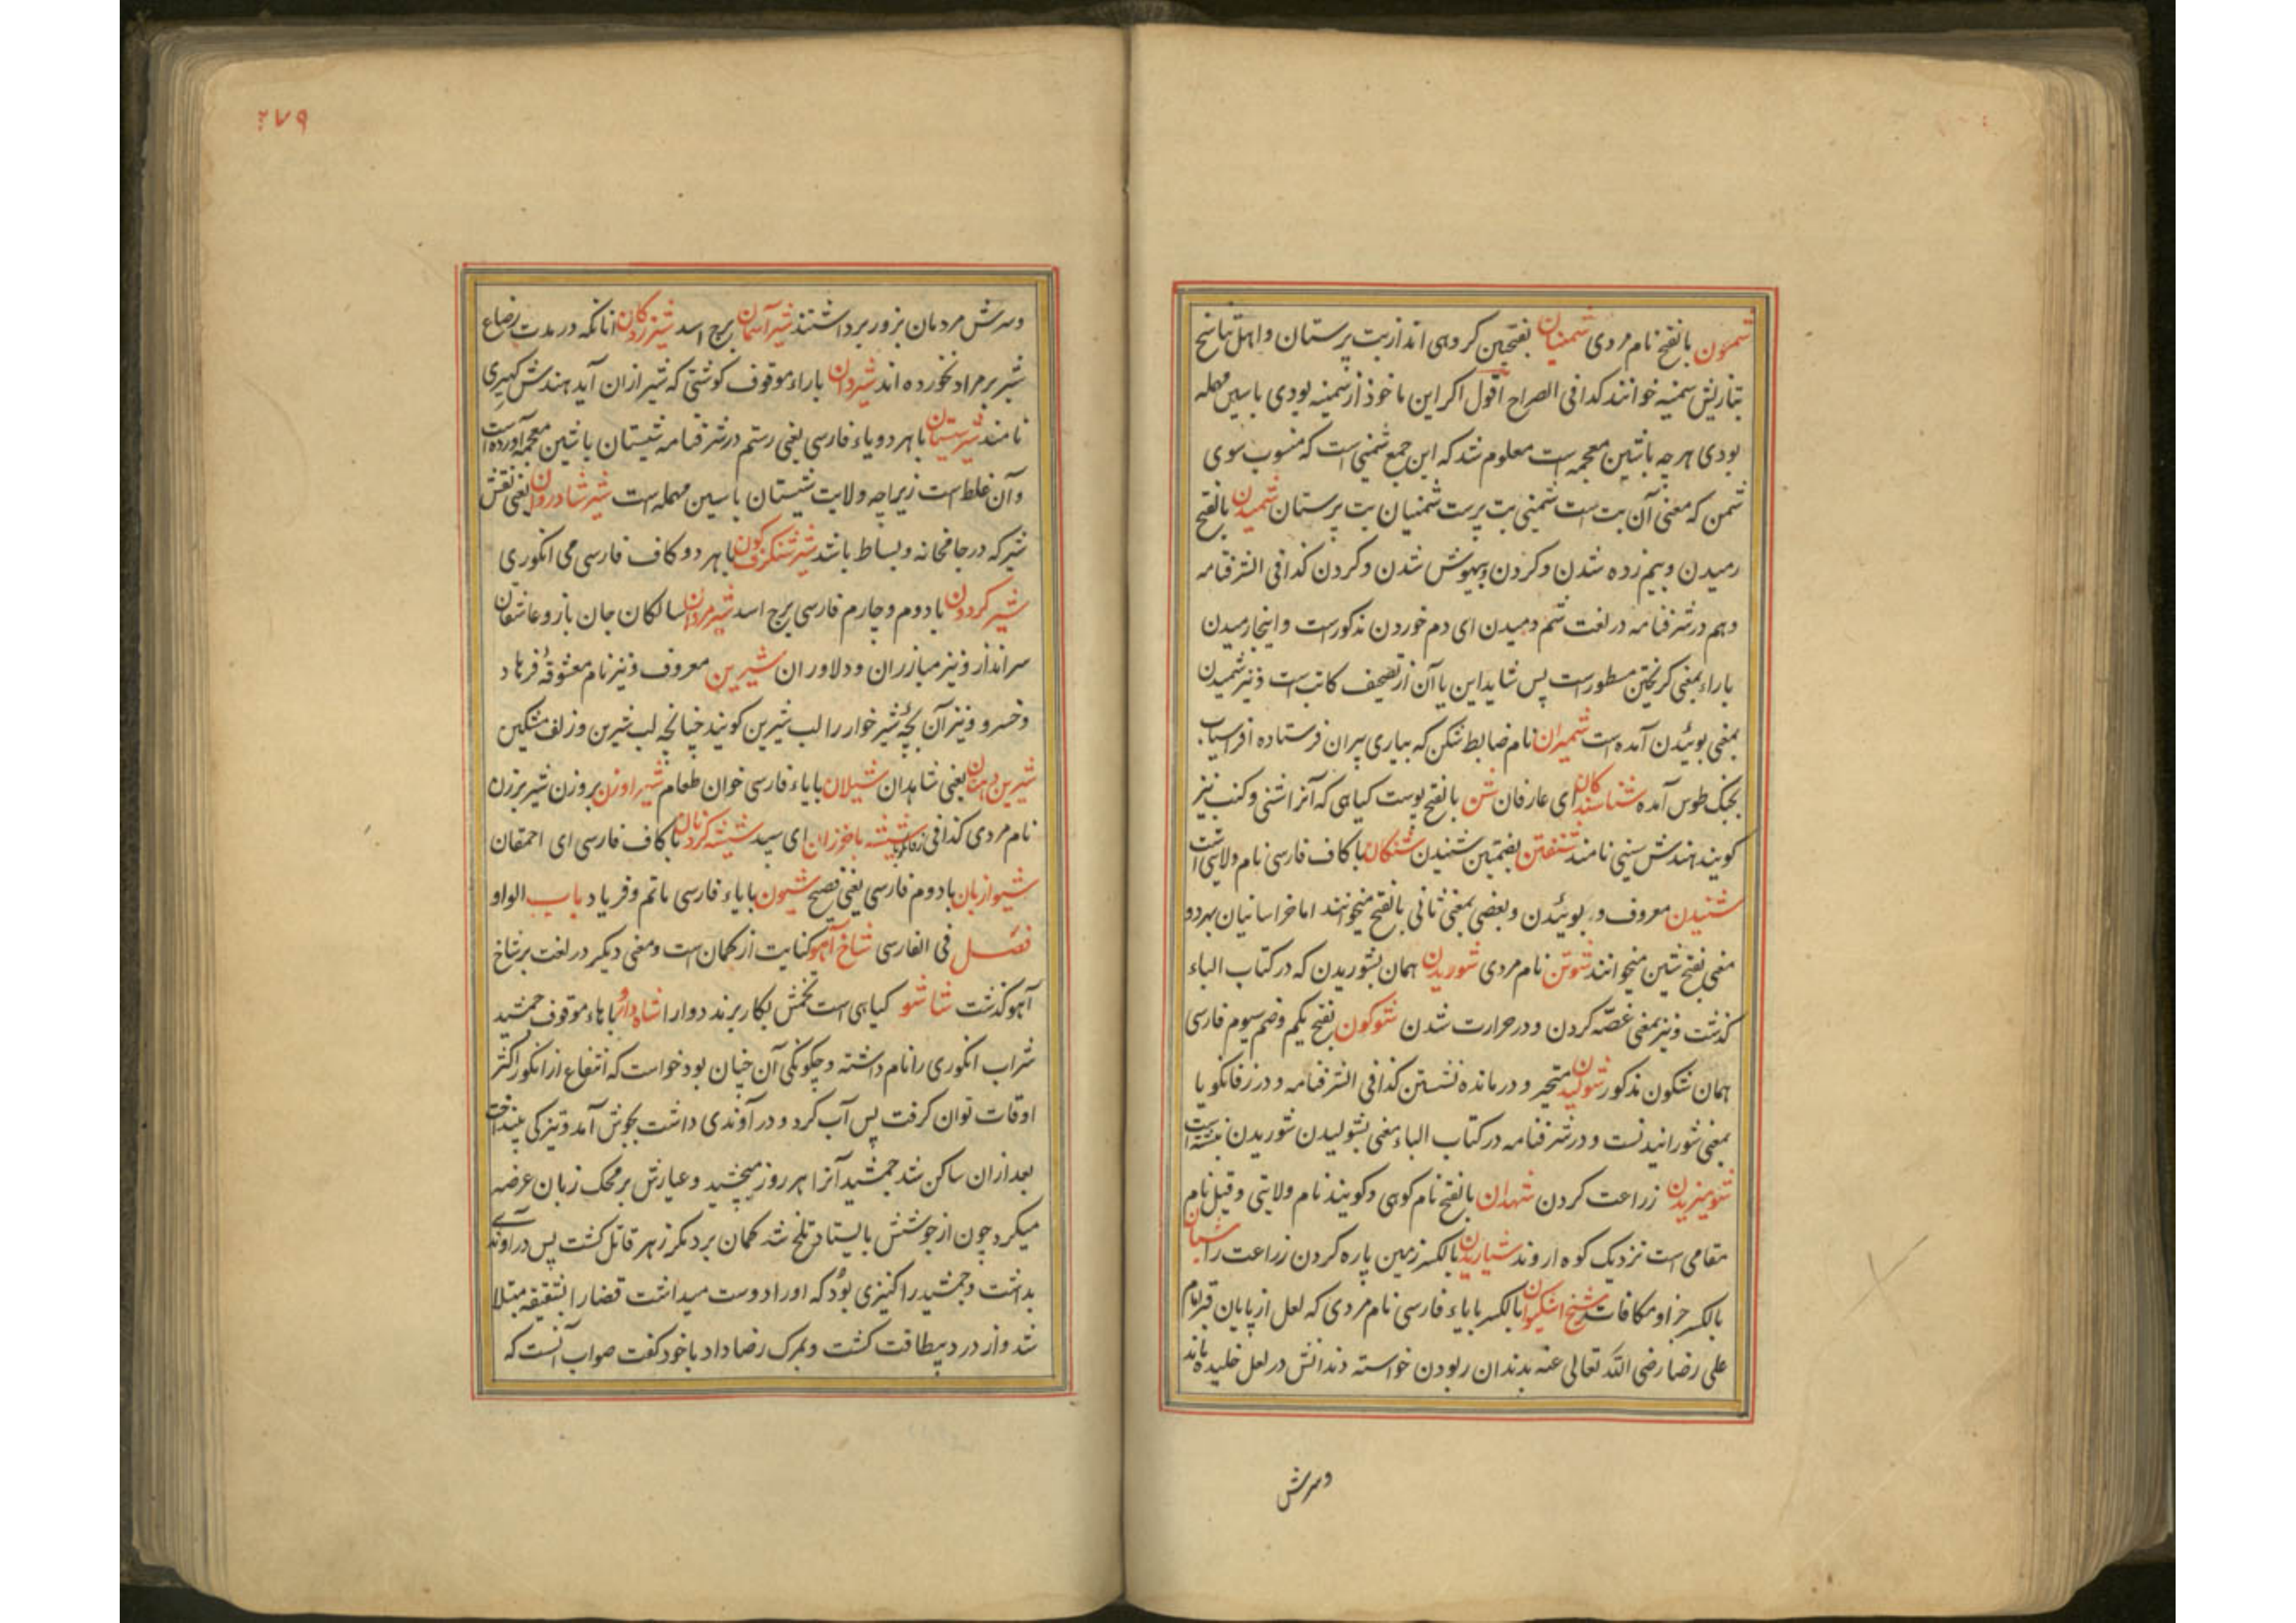 شمعون بالفتح نام مردی شمنیان بفتحتین کروهی اند از بت پرستان و اهل تناسخ
بتازیش سمنیه خوانند کذا فی الصراح اقول اکر این ماخوذ از سمنیه بودی با سین مهمله
بودی هرچه با شین معجمه است معلوم شد که این جمع شمنی است که منسوب سوی
شمن که معنی آن بت است شمنی بت پرست شمنیان بت پرستان شمیدن بالفتح
رمیدن و بیم زده شدن و کردن و بیهوش شدن و کردن کذا فی الشرفنامه
و هم در شرفنامه در لغت شم دمیدن ای دم خوردن مذکورست و اینجا رمیدن
با راء بمعنی کریختن مسطورست پس شاید این یا آن از تصحیف کاتب است و نیز شمیدن
بمعنی بوئیدن آمده است شمیران نام ضابط شکن که بیاری پیران فرستاده افراسیاب
بجنک طوس آمده شناسندکان ای عارفان شن بالفتح پوست کیاهی که آنرا شنی و کنب نیز
کویند هندش سنی نامند شنفتن بضمتین شنیدن شنکان با کاف فارسی نام ولایتی است
شنیدن معروف و بوئیدن و بعضی بمعنی ثانی بالفتح میخوانند اما خراسانیان بهردو
معنی بفتح شین میخوانند شوتن نام مردی شوریدن همان بشوریدن که در کتاب الباء
کذشت و نیز بمعنی غصّه کردن و در حرارت شدن شوکون بفتح یکم و ضم سیوم فارسی
همان شکون مذکور شولیدن متحیر و درمانده نشستن کذا فی الشرفنامه و در زفانکویا
بمعنی شورانیدنست و در شرفنامه در کتاب الباء معنی بشولیدن شوریدن نبشته است
شومیزیدن زراعت کردن شهدان بالفتح نام کوهی و کویند نام ولایتی و قیل نام
مقامی است نزدیک کوه اروند شیاریدن بالکسر زمین پاره کردن زراعت را شیان
بالکسر جزا و مکافات شیخ اشکیوان بالکسر با یاء فارسی نام مردی که لعل از پایان قبر امام
علی رضا رضی الله تعالی عنه بدندان ربودن خواسته دندانش در لعل خلیده ماند
و سرش
۲۷۹
و سرش مردمان بزور برداشتند شیر آسمان برج اسد شیرزدکان آنانکه در مدت رضاع
شیر بر مراد نخورده اند شیردان با راء موقوف کوشتی که شیر ازان آید هندش کهیری
نامند شیرسیستان با هر دو یاء فارسی یعنی رستم در شرفنامه شیستان با شین معجمه آورده است
و آن غلط است زیراچه ولایت سیستان با سین مهمله است شیر شادروان یعنی نقش
شیر که در جامخانه و بساط باشد شیر شنکرف کون با هر دو کاف فارسی می انکوری
شیر کردون با دوم و چارم فارسی برج اسد شیرمردان سالکان جان باز و عاشقان
سرانداز و نیز مبارزان و دلاوران شیرین معروف و نیز نام معشوقهٔ فرهاد
و خسرو و نیز آن بچهٔ شیر خوار را لب شیرین کویند چنانچه لب شیرین و زلف مشکین
شیرین دهنان یعنی شاهدان شیلان با یاء فارسی خوان طعام شیراوزن بر وزن شیر بزن
نام مردی کذا فی زفانکویا شیشه با خوزان ای سپید شیشه کردنان با کاف فارسی ای احمقان
شیوا زبان با دوم فارسی یعنی فصیح شیون با یاء فارسی ماتم و فریاد باب الواو
فصل فی الفارسی شاخ آهو کنایت از کمان است و معنی دیکر در لغت بر شاخ
آهو کذشت شاشو کیاهی است تخمش بکار برند دوا را شاه دارو با هاء موقوف جمشید
شراب انکوری را نام داشته و چکونکی آن چنان بود خواست که انتفاع از انکور اکثر
اوقات توان کرفت پس آب کرد و در آوندی داشت بجوش آمد و تیزکی بینداخت
بعد ازان ساکن شد جمشید آنرا هر روز میچشید و عیارش بر محک زبان عرضه
میکرد چون از جوشش بایستاد تلخ شد کمان برد مکر زهر قاتل کشت پس در آوندی
بداشت و جمشید را کنیزی بود که او را دوست میداشت قضا را بشقیقه مبتلا
شد و از درد بیطاقت کشت و بمرک رضا داد با خود کفت صواب آنست که